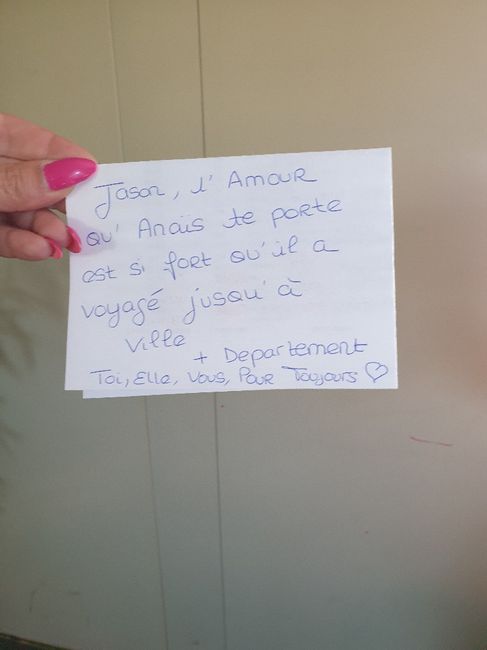 Jason, l'Amour
qu'Anaïs te porte
est si fort qu'il a
voyagé jusqu'à
ville
+ Departement
Toi, Elle, Vous, Pour Toujours ♡